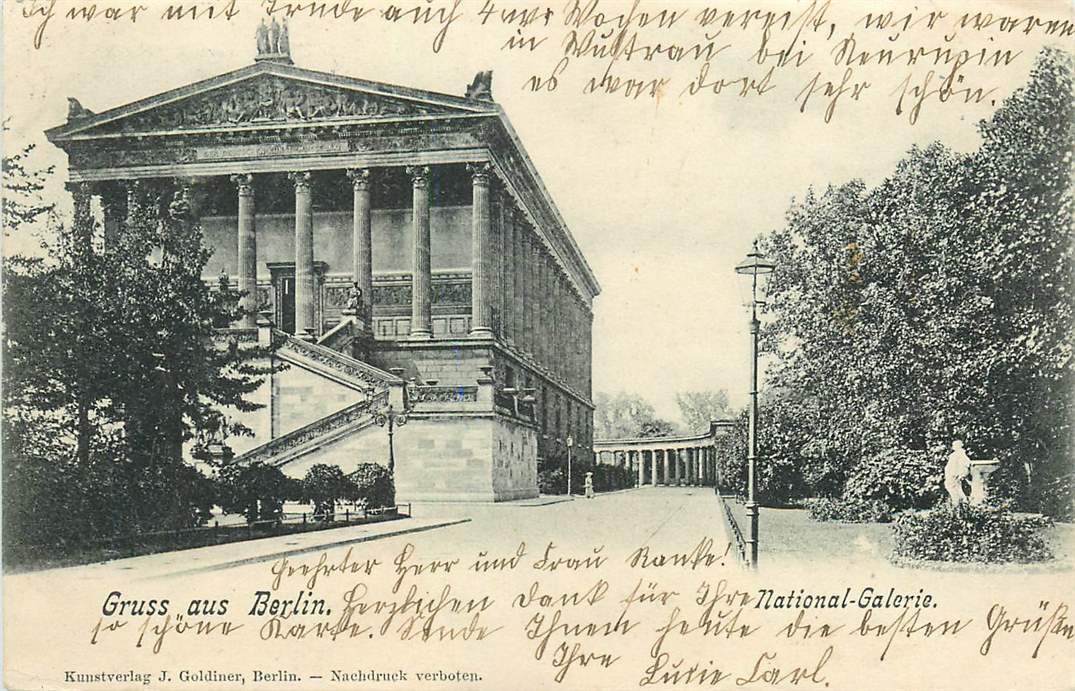 Ich war mit Trude auch 4 Wochen verreist, wir waren
in Wustrau bei Neurupin
es war dort sehr schön.
Geehrter Herr und Frau Ranke!
Gruss aus Berlin.
Herzlichen Dank für Ihre
National-Galerie.
so schöne Karte. Sende Ihnem heute die besten Grüße
Ihre Lucie Carl.
Kunstverlag J. Goldiner, Berlin. — Nachdruck verboten.